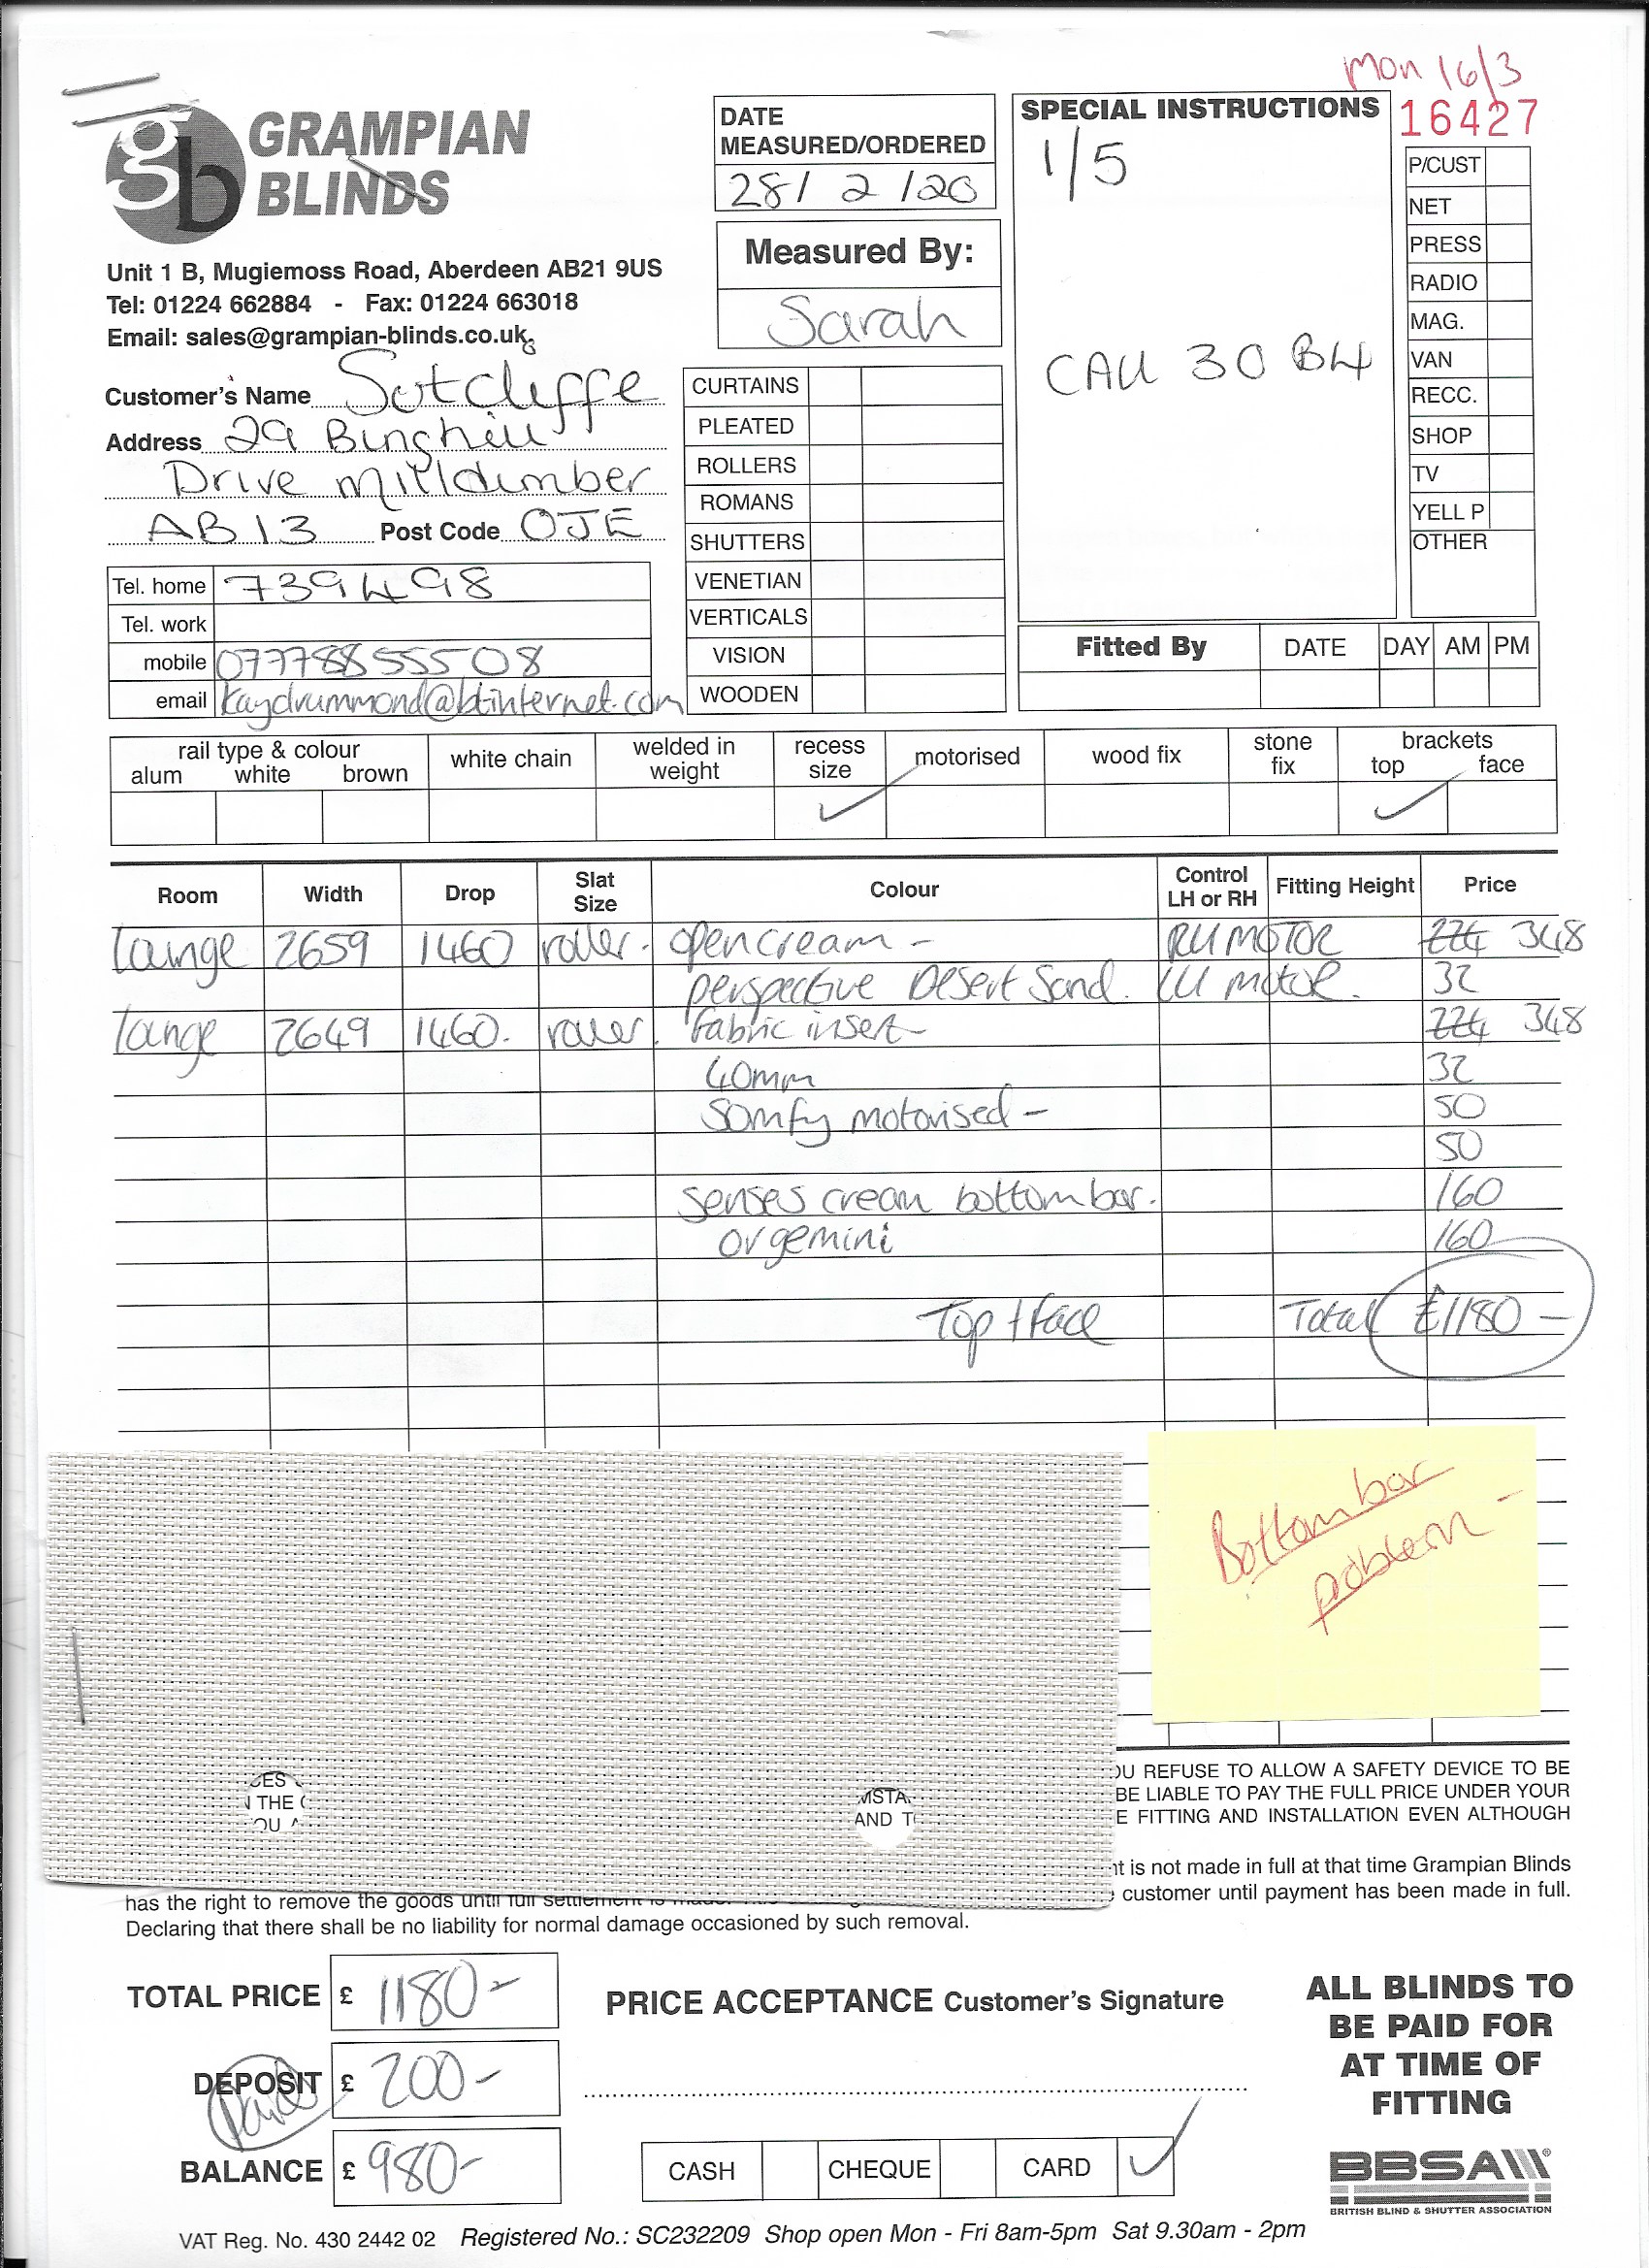 Mon 16/3
16427
GRAMPIAN
BLINDS
gb
Unit 1 B, Mugiemoss Road, Aberdeen AB21 9US
Tel: 01224 662884 - Fax: 01224 663018
Email: sales@grampian-blinds.co.uk
Customer's Name Sutcliffe
Address 29 Binghill
Drive Milltimber
AB13 Post Code 0JE
Tel. home 739498
Tel. work
mobile
email kaydrummond@btinternet.com
DATE
MEASURED/ORDERED
28/2/20
Measured By:
Sarah
CURTAINS
PLEATED
ROLLERS
ROMANS
SHUTTERS
VENETIAN
VERTICALS
VISION
WOODEN
SPECIAL INSTRUCTIONS
1/5
CALL 30 B4
P/CUST
NET
PRESS
RADIO
MAG.
VAN
RECC.
SHOP
TV
YELL P
OTHER
Fitted By DATE DAY AM PM
rail type & colour white chain welded in weight recess size motorised wood fix stone fix brackets
alum white brown top face
✓ ✓
Room Width Drop Slat Size Colour Control LH or RH Fitting Height Price
lounge 2659 1460 roller. opencream - RH MOTOR 224 348
perspective Desert Sand. LH motor. 32
lounge 2649 1460. roller. fabric insert - 224 348
40mm 32
Somfy motorised - 50
50
senses cream bottom bar. 160
or gemini 160
Top + face Total £1180 -
Bottom bar
problem -
OU REFUSE TO ALLOW A SAFETY DEVICE TO BE
BE LIABLE TO PAY THE FULL PRICE UNDER YOUR
E FITTING AND INSTALLATION EVEN ALTHOUGH
THE
OU
MSTA
AND T
nt is not made in full at that time Grampian Blinds
has the right to remove the goods until full settlement is customer until payment has been made in full.
Declaring that there shall be no liability for normal damage occasioned by such removal.
TOTAL PRICE £ 1180-
DEPOSIT £ 200-
Paid
BALANCE £ 980-
PRICE ACCEPTANCE Customer's Signature
CASH CHEQUE CARD ✓
ALL BLINDS TO
BE PAID FOR
AT TIME OF
FITTING
BBSA
BRITISH BLIND & SHUTTER ASSOCIATION
VAT Reg. No. 430 2442 02 Registered No.: SC232209 Shop open Mon - Fri 8am-5pm Sat 9.30am - 2pm